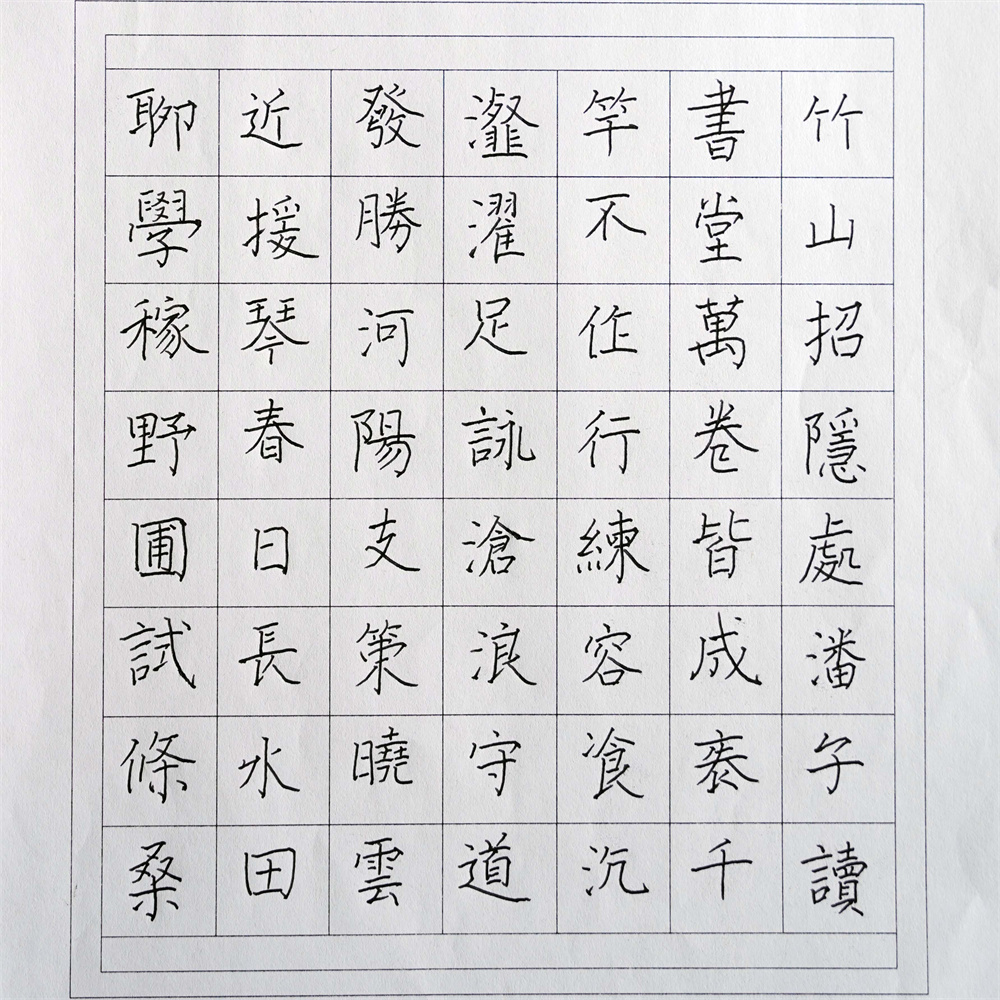 竹山招隱處潘子讀
書堂萬卷皆成袠千
竿不作行練容飡沆
瀣濯足詠滄浪守道
發勝河陽支策曉雲
近援琴春日長水田
聊學稼野圃試條桑